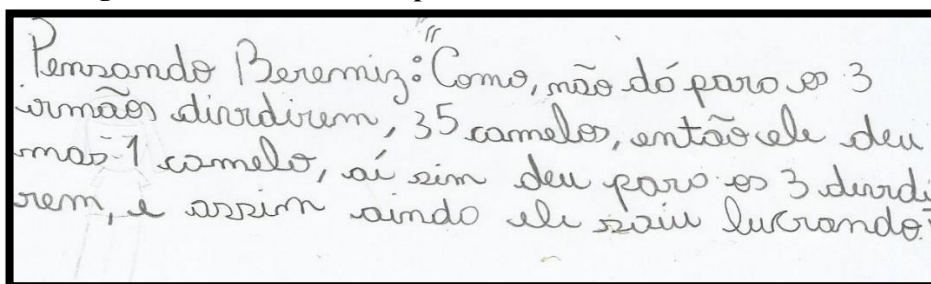 Pensando Beremiz: "Como, não dá para os 3
irmãos dividirem, 35 camelos, então ele deu
mas 1 camelo, aí sim deu para os 3 dividi
rem, e assim ainda ele saiu lucrando"